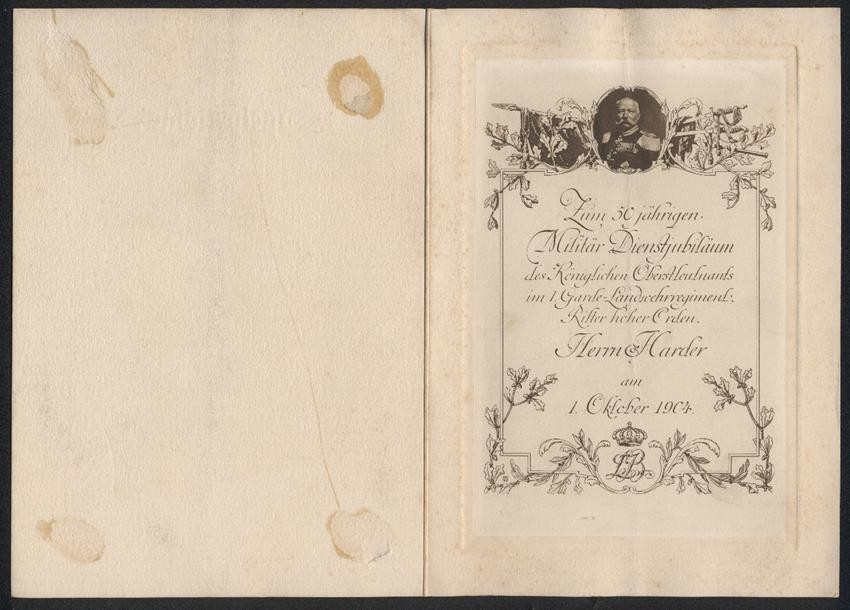 Zum 50 jährigen
Militär Dienstjubiläum
des Königlichen Oberstleutnants
im 1. Garde-Landwehrregiment.
Ritter hoher Orden.
Herrn Harder
am
1. Oktober 1904.
LB